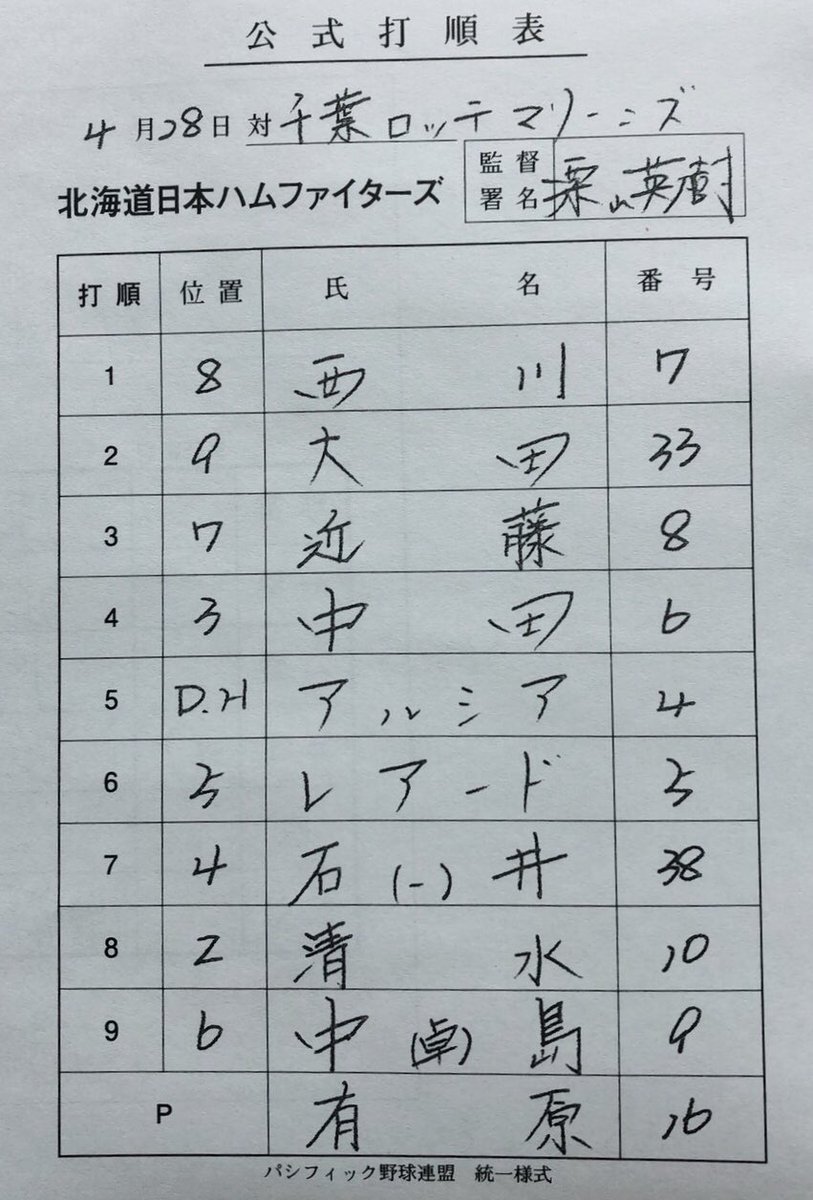 公式打順表
4月28日 対 千葉ロッテマリーンズ
北海道日本ハムファイターズ 監督署名 栗山英樹
打順 位置 氏名 番号
1 8 西川 7
2 9 大田 33
3 7 近藤 8
4 3 中田 6
5 D.H アルシア 4
6 5 レアード 5
7 4 石(一)井 38
8 2 清水 10
9 6 中(卓)島 9
P 有原 16
パシフィック野球連盟 統一様式